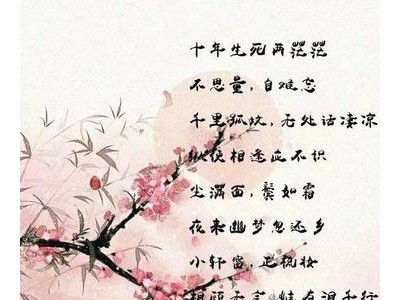 十年生死两茫茫
不思量，自难忘
千里孤坟，无处话凄凉
纵使相逢应不识
尘满面，鬓如霜
夜来幽梦忽还乡
小轩窗，正梳妆
相顾无言，惟有泪千行